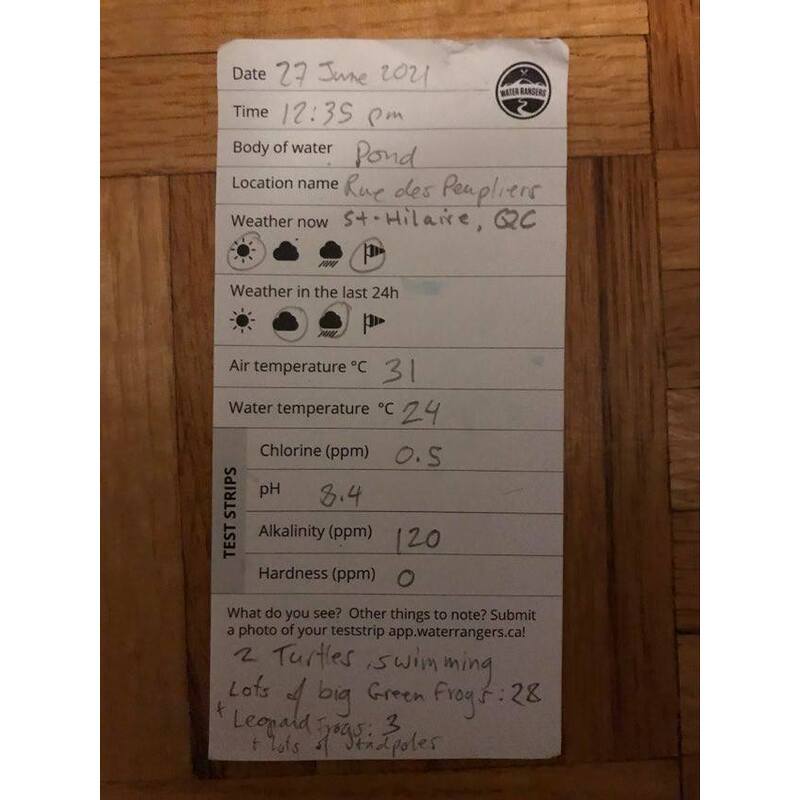 Date 27 June 2021
WATER RANGERS
Time 12:35 pm
Body of water Pond
Location name Rue des Peupliers
Weather now St-Hilaire, QC
Weather in the last 24h
Air temperature °C 31
Water temperature °C 24
TEST STRIPS
Chlorine (ppm) 0.5
pH 8.4
Alkalinity (ppm) 120
Hardness (ppm) 0
What do you see? Other things to note? Submit
a photo of your teststrip app.waterrangers.ca!
2 Turtles, swimming
Lots of big Green Frogs: 28
+ Leopard Frogs: 3
+ lots of tadpoles